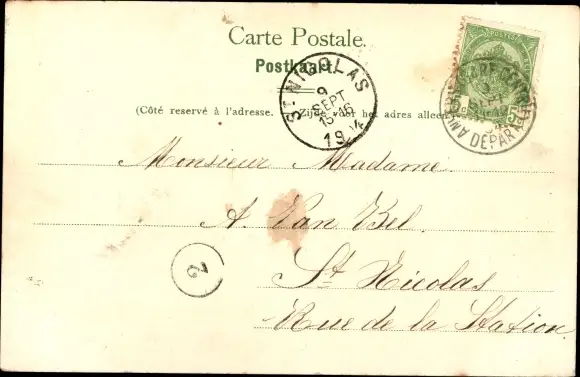 Carte Postale.
Postkaart.
(Côté reservé à l'adresse. Zijde voor het adres alleen
ST NICOLAS
9
SEPT
15-16
19 4
GARE CENTR
DEPART
5
2
Monsieur Madame.
A. Van Bel.
St Nicolas
Rue de la Station.